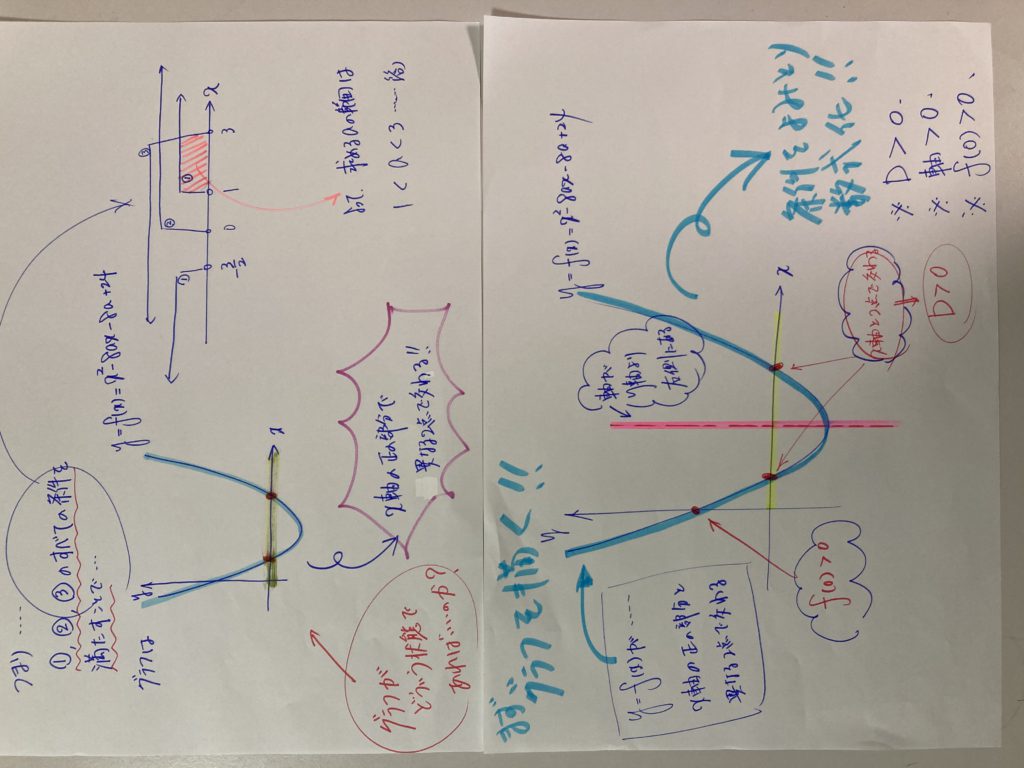 つまり ……
①, ②, ③ のすべての条件を
満たすことで…
グラフは
y = f(x) = x²-8ax-8a+24
y
x
グラフが
どういう状態で
あればいいのか?
x軸の正の部分で
異なる2点で交わる!!
①
②
③
①
-3/2
0
1
3
よって、求めるaの範囲は
1 < a < 3 ……(答)
まずグラフを描く!!
y = f(x)が ……
x軸の正の部分と
異なる2点で交わる
y
y = f(x) = x²-8ax-8a+24
軸が
y軸より
右側にある
x
f(0) > 0
x軸と2点で交わる
D > 0
条件をよみとり
数式化!!
※ D > 0.
※ 軸 > 0.
※ f(0) > 0.